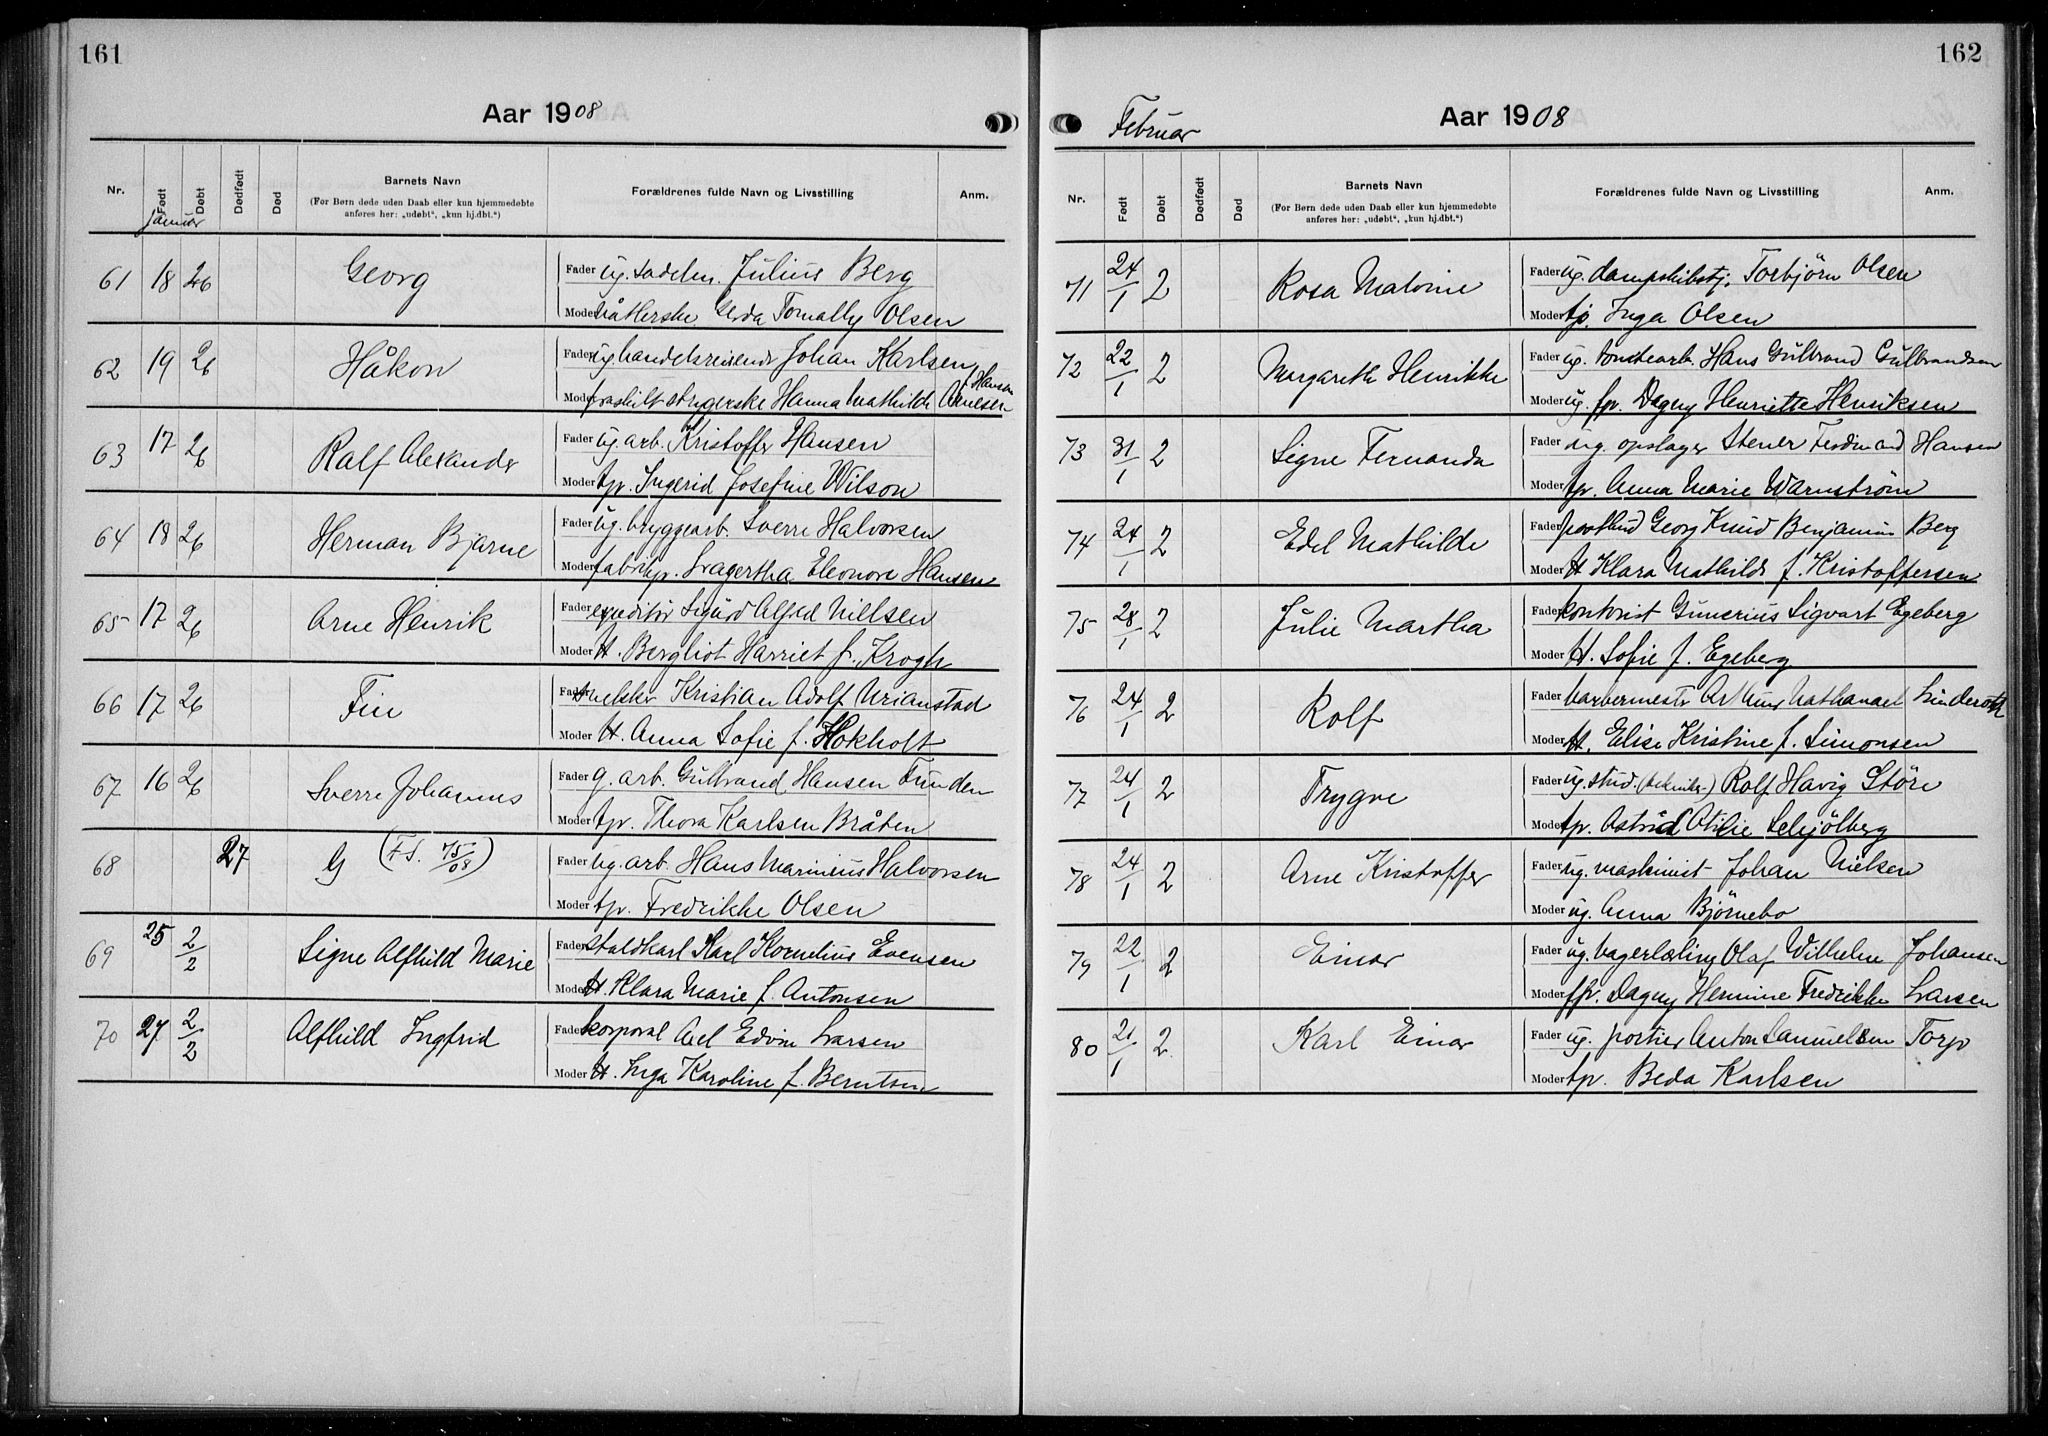 161
Aar 1908
Nr.
Født
Døbt
Dødfødt
Død
Barnets Navn
(For Børn døde uden Daab eller kun hjemmedøbte
anføres her: „udøbt“, „kun hj.dbt.“)
Forældrenes fulde Navn og Livsstilling
Anm.
Januar
61 18 26 Georg
Fader ug. sadelm. Julius Berg
Moder Gerda Olsen
62 19 26 Håkon
Fader ug handelsreisende Johan Karlsen
Moder fraskilt strygerske Hanna Mathilde f. Hansen
63 17 26 Ralf Alexander
Fader ug. arb. Kristoffer Hansen
Moder tp. Ingerid Josefine Wilson
64 18 26 Herman Bjarne
Fader ug. bryggearb. Sverre Halvorsen
Moder fabrikp. Svagertha Eleonore Hansen
65 17 26 Arne Henrik
Fader expeditør Sigurd Alfred Nielsen
Moder H. Bergliot Harriet f. Krogh
66 17 26 Fin
Fader snekker Kristian Adolf Urianstad
Moder H. Anna Sofie f. Hokholt
67 16 26 Sverre Johannes
Fader g. arb. Gulbrand Hansen Funden
Moder tp. Thora Karlsen Bråten
68 27 G (F.S. 75/08)
Fader ug. arb. Hans Marinius Halvorsen
Moder tp. Fredrikke Olsen
69 25 2/2 Signe Alfhild Marie
Fader staldkarl Karl Kornelius Evensen
Moder H. Klara Marie f. Antonsen
70 27 2/2 Alfhild Ingfrid
Fader korporal Axel Edvin Larsen
Moder H. Inga Karoline f. Berntsen
162
Februar
Aar 1908
Nr.
Født
Døbt
Dødfødt
Død
Barnets Navn
(For Børn døde uden Daab eller kun hjemmedøbte
anføres her: „udøbt“, „kun hj.dbt.“)
Forældrenes fulde Navn og Livsstilling
Anm.
71 24/1 2 Rosa Malvine
Fader ug. dampskibstj. Torbjörn Olsen
Moder tp. Inga Olsen
72 22/1 2 Margareth Henrikke
Fader ug. Hans Gulbrand Gulbrandsen
Moder ug. fp. Dagny Henriette Henriksen
73 31/1 2 Signe Fernanda
Fader ug. opslager Stener Ferdinand Hansen
Moder tp. Anna Marie Warnström
74 24/1 2 Edel Mathilde
Fader postbud Georg Knud Benjamin Berg
Moder H Klara Mathilde f. Kristoffersen
75 28/1 2 Julie Martha
Fader kontorist Gunerius Sigvart Egeberg
Moder H. Sofie f. Egeberg
76 24/1 2 Rolf
Fader barbermester Arthur Nathanael Linderoth
Moder H. Elise Kristine f. Simonsen
77 24/1 2 Trygve
Fader ug. stud. (tekniker) Rolf Havig Störe
Moder tp. Astrid Otilie Schjölberg
78 24/1 2 Arne Kristoffer
Fader ug. maskinist Johan Nielsen
Moder ug. Anna Björnebo
79 22/1 2 Einar
Fader ug. bagerlæling Olaf Wilhelm Johansen
Moder fp. Dagny Hermine Fredrikke Larsen
80 21/1 2 Karl Einar
Fader ug. portier Anton Samuelsen Torp
Moder tp. Beda Karlsen